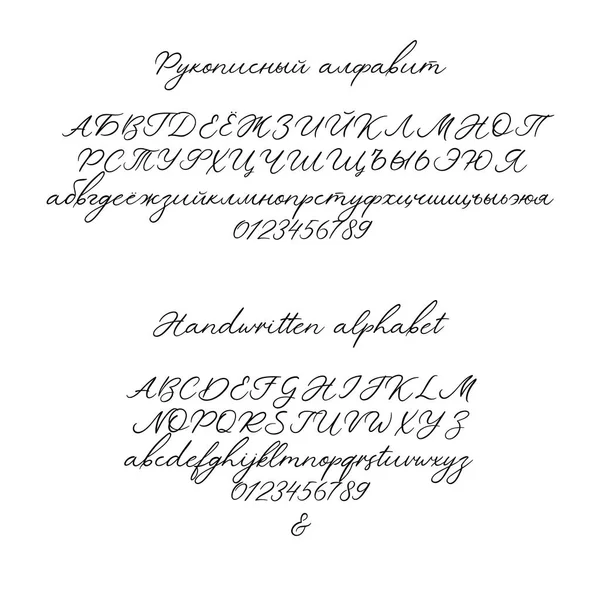 Рукописный алфавит
АБВГДЕЁЖЗИЙКЛМНОП
РСТУФХЦЧШЩЪЫЬЭЮЯ
абвгдеёжзийклмнопрстуфхцчшщъыьэюя
0123456789
Handwritten alphabet
ABCDEFGHIJKLM
NOPQRSTUVWXYZ
abcdefghijklmnopqrstuvwxyz
0123456789
&